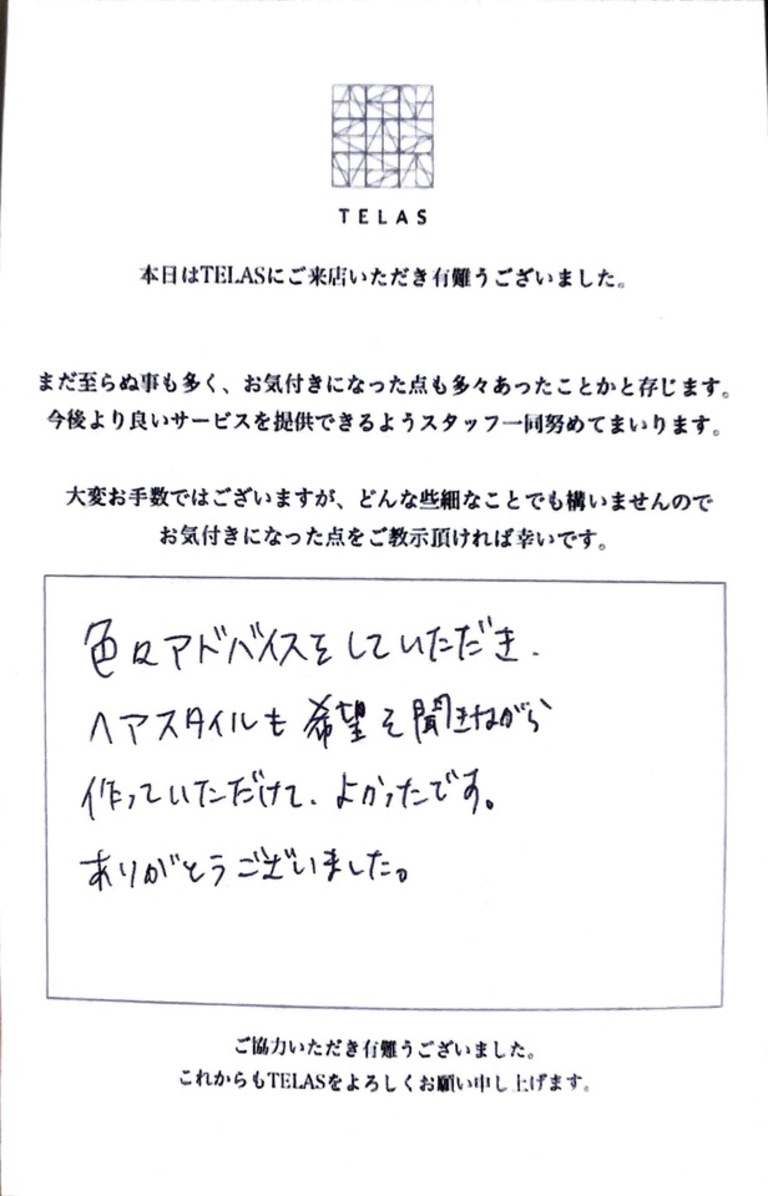 TELAS
本日はTELASにご来店いただき有難うございました。
まだ至らぬ事も多く、お気付きになった点も多々あったことかと存じます。
今後より良いサービスを提供できるようスタッフ一同努めてまいります。
大変お手数ではございますが、どんな些細なことでも構いませんので
お気付きになった点をご教示頂ければ幸いです。
色々アドバイスをしていただき、
ヘアスタイルも希望を聞きながら
作っていただけて、よかったです。
ありがとうございました。
ご協力いただき有難うございました。
これからもTELASをよろしくお願い申し上げます。